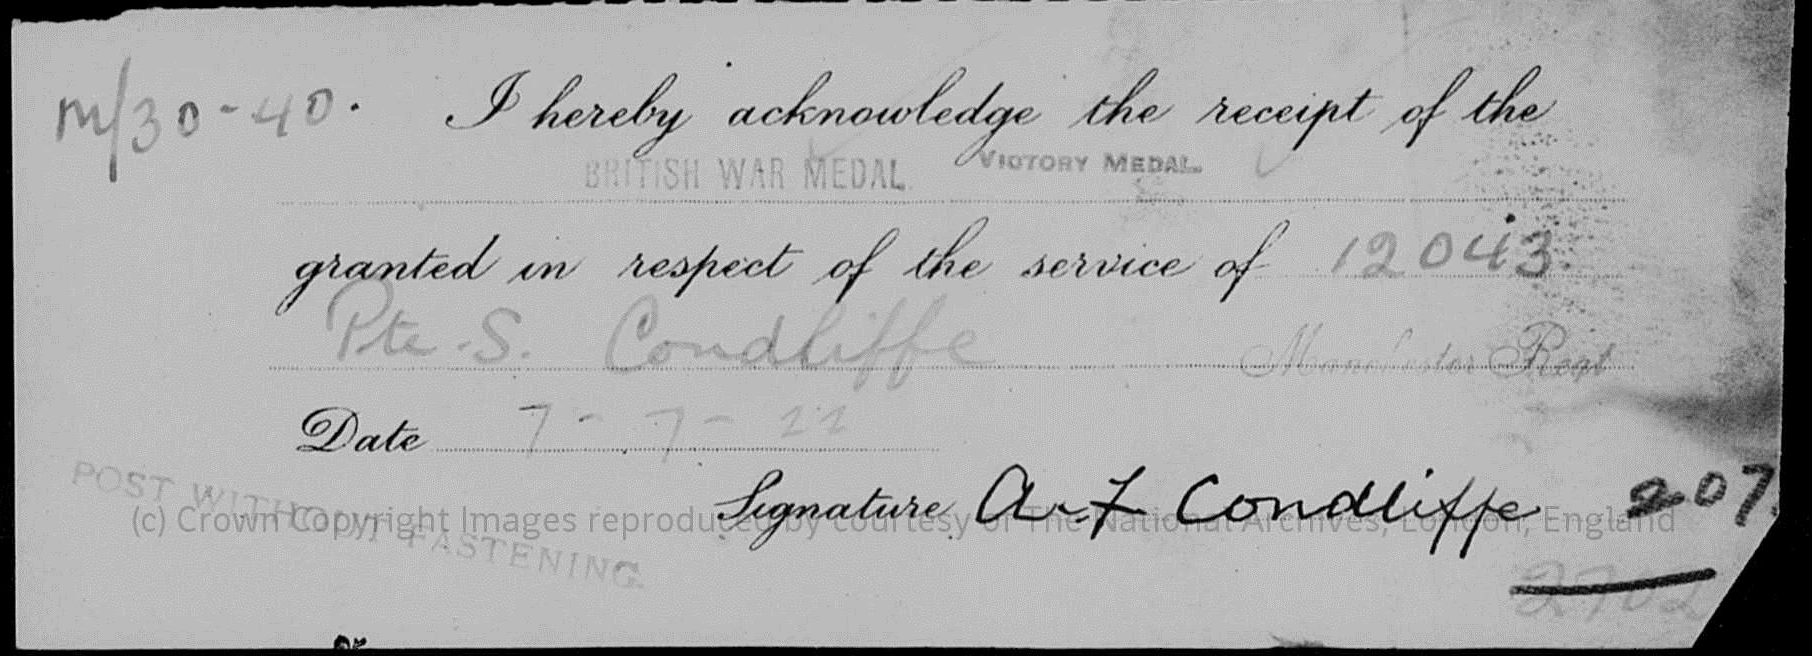 m/30-40. I hereby acknowledge the receipt of the
BRITISH WAR MEDAL. VICTORY MEDAL.
granted in respect of the service of 12043.
Pte. S. Condliffe Manchester Regt
Date 7-7-22
POST WITHOUT FASTENING
Signature A.F Condliffe 207.
(c) Crown Copyright Images reproduced by courtesy of The National Archives, London, England
2702